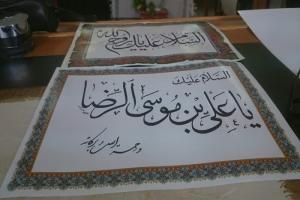 السلام علیک
السلام علیک
یا علی بن موسی الرضا
و رحمة الله و برکاته